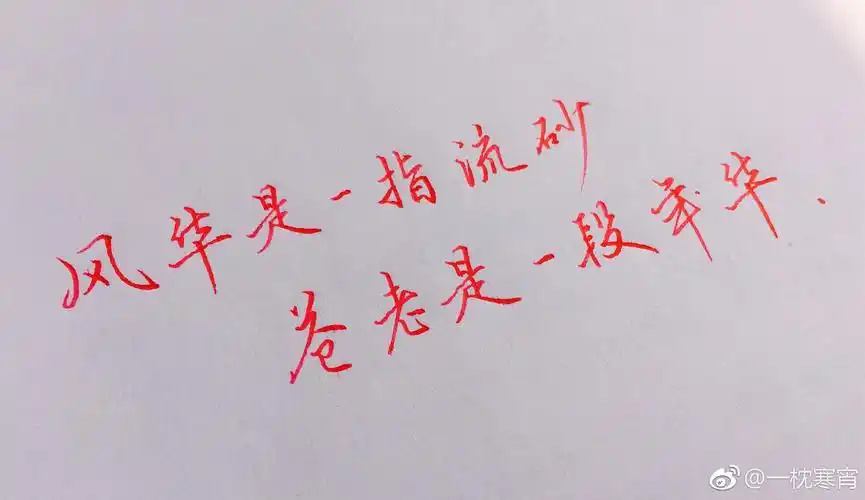 风华是一指流砂
苍老是一段年华.
@一枕寒宵